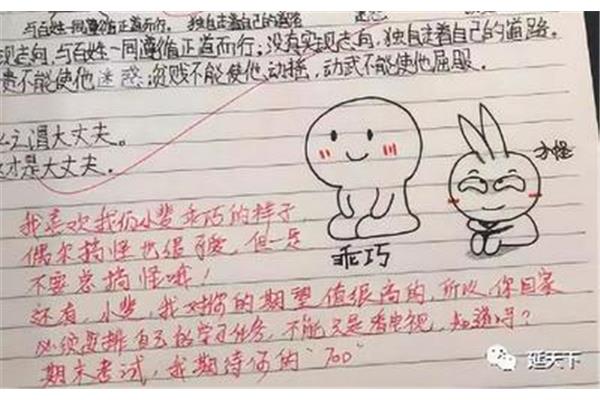 与百姓一同遵循正道而行。独自走着自己的道路
现志向,与百姓一同遵循正道而行;没有实现志向,独自走着自己的道路。
贵不能使他迷惑,贫贱不能使他动摇,动武不能使他屈服.
么之谓大丈夫。
才是大丈夫.
搞怪
乖巧
我喜欢我们小斐乖巧的样子
偶尔搞怪也很可爱,但一是
不要总搞怪哦!
还有,小斐,我对你的期望值很高的,所以,你回家
必须安排自己的学习任务,不能只是看电视,知道吗?
期末考试,我期待你的"700"
延天下